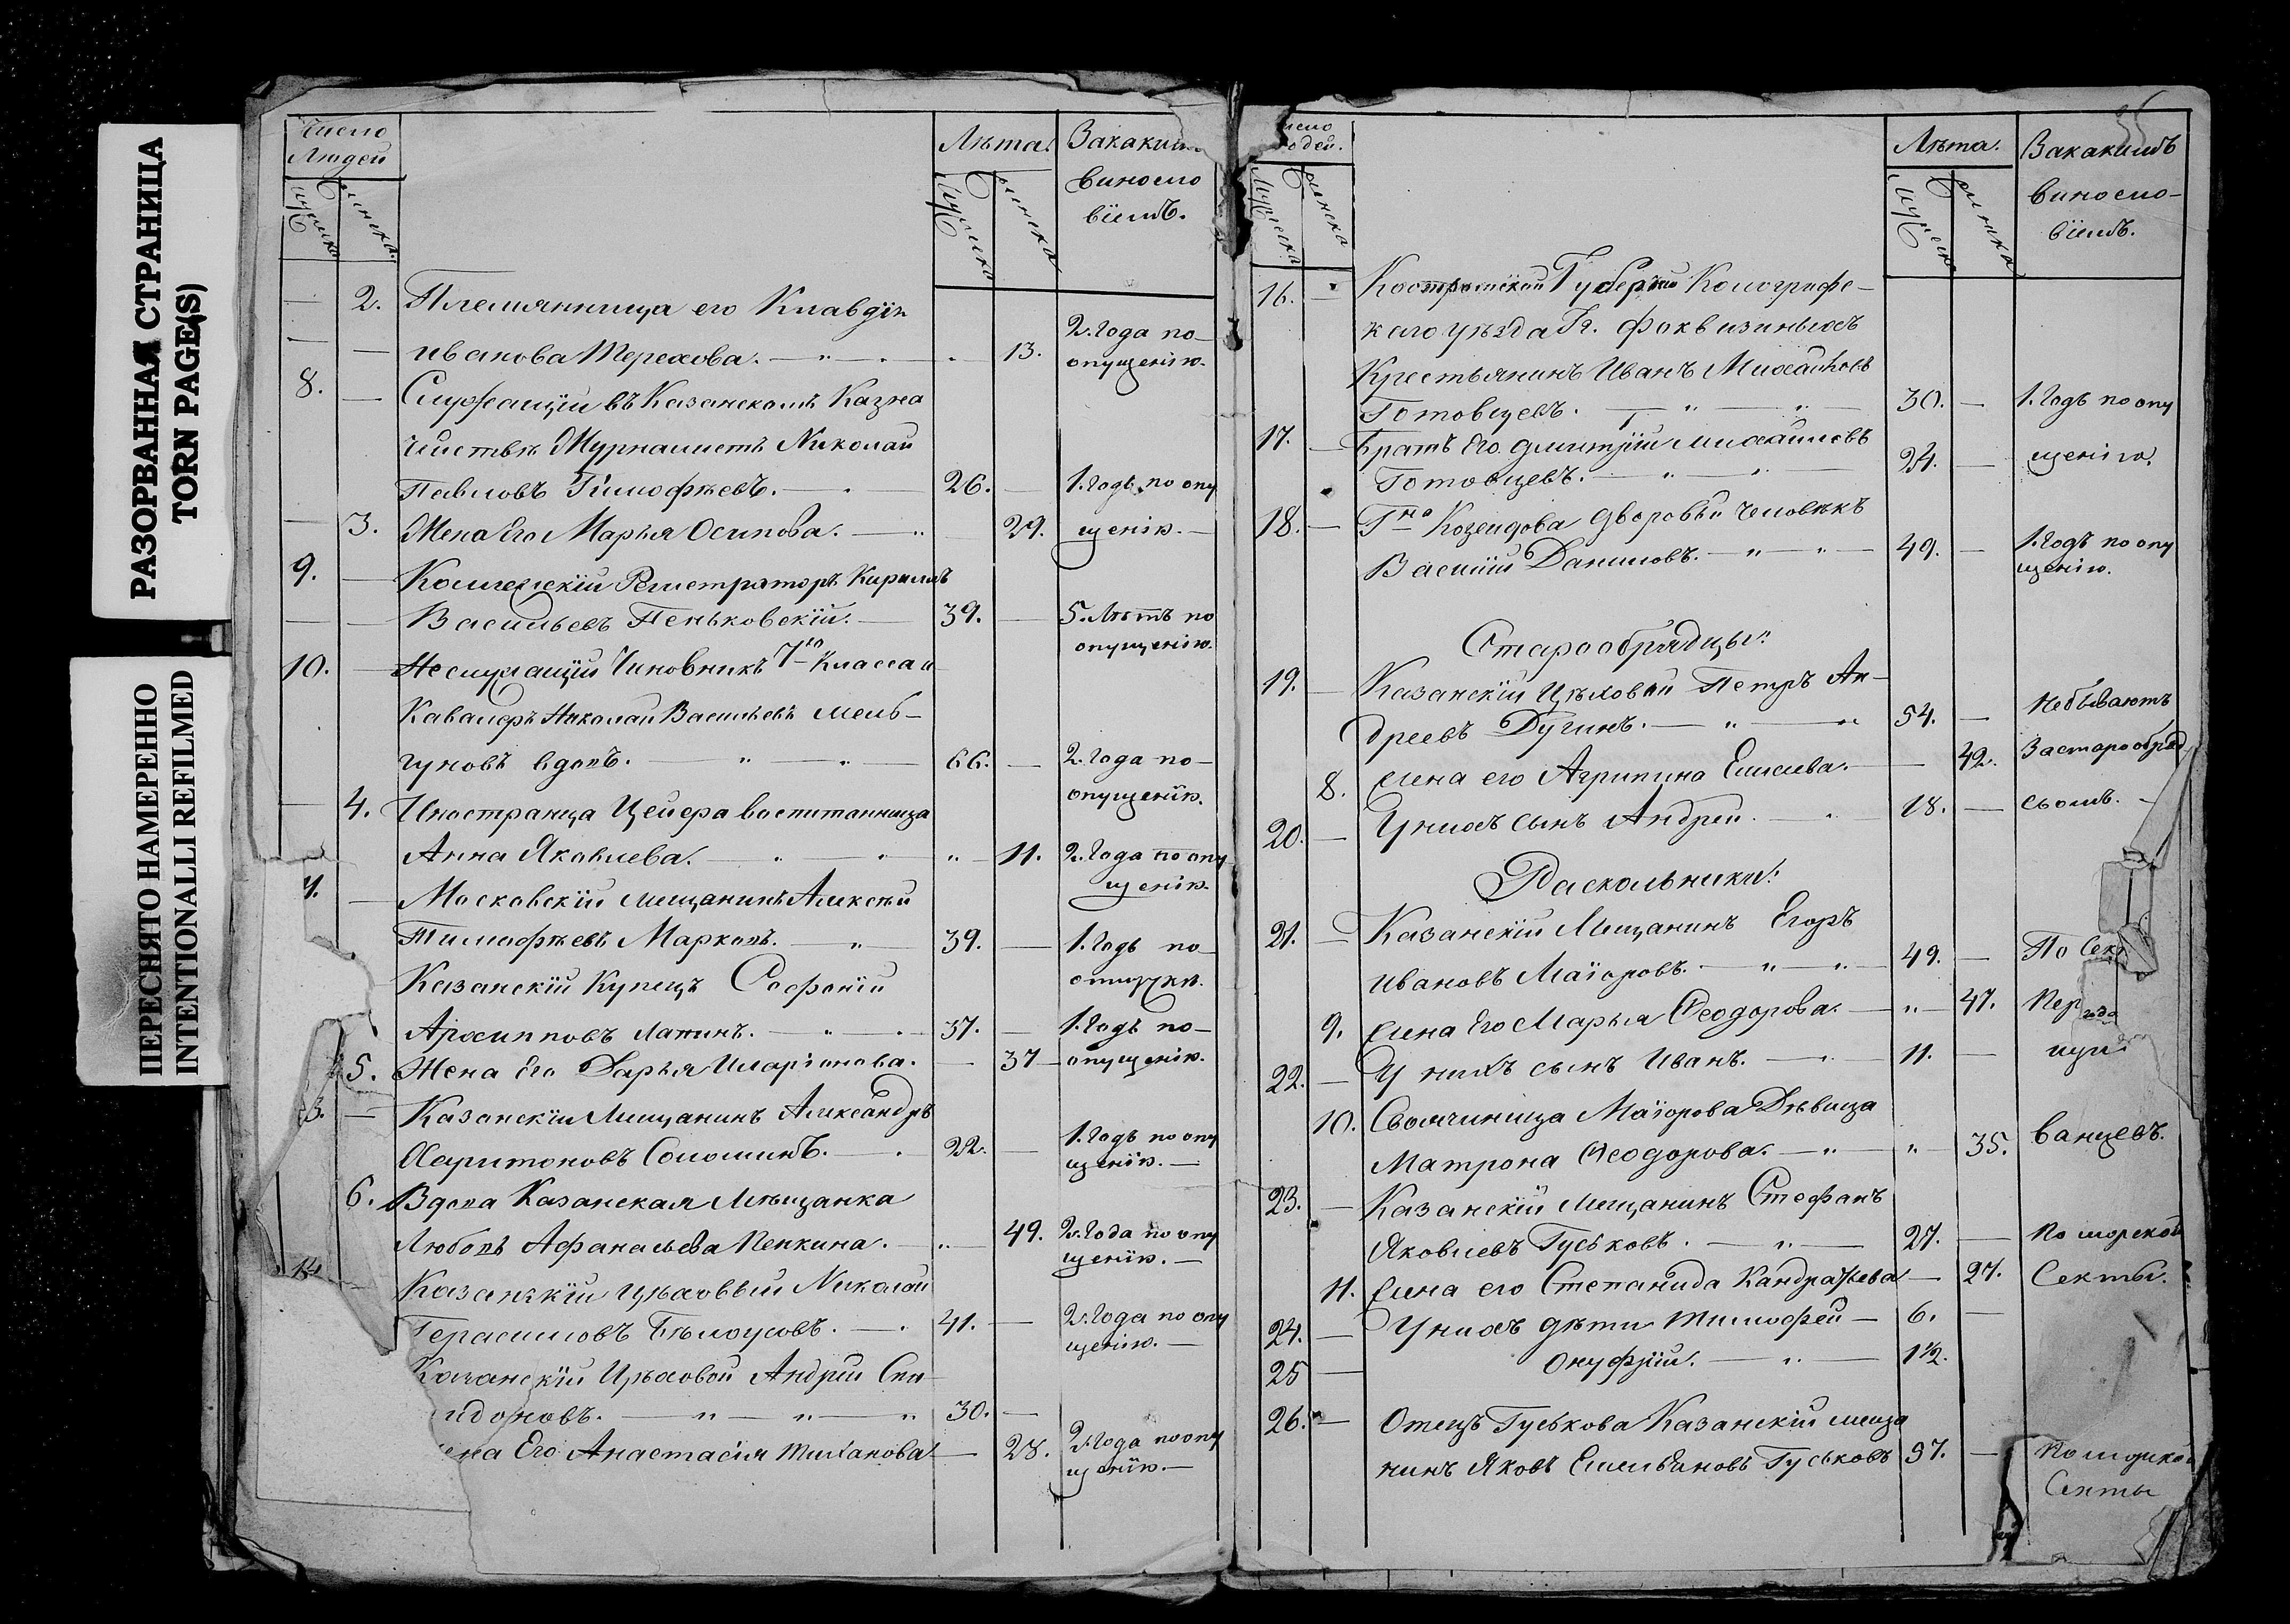 РАЗОРВАННАЯ СТРАНИЦА
TORN PAGE(S)
ПЕРЕСНЯТО НАМЕРЕННО
INTENTIONALLI REFILMED
Число Людей
Лѣта.
Мужска
женска
2. Племянница его Клавдія
Иванова Терехова. 13. 2. Года по
опущенію.
8. Служащій въ Казанскомъ Казна
чействѣ Журналистъ Николай
Павловъ Тимофѣевъ. 26. 1. Годъ по опу
3. Жена Его Марья Осипова. 29. щенію.
9. Коллежскій Регистраторъ Кириллъ
Васильевъ Пеньковскій. 39. 5. Лѣтъ по
опущенію.
10. Неслужащій Чиновникъ 7го Класса и
Кавалеръ Николай Васильевъ Мель-
гуновъ вдовъ. 66. 2. Года по
опущенію.
4. Иностранца Цейера воспитанница
Анна Яковлева. 11. 2. Года по опу
щенію.
Московскій мещанинъ Алексей
Тимофѣевъ Марковъ. 39. 1. Годъ по
отлучкѣ.
Казанскій Купецъ Софоній
Архипповъ Лапинъ. 37. 1. Годъ по
5. Жена Его Дарья Иларіонова. 37 опущенію.
3. Казанскій Мещанинъ Александръ
Харитоновъ Соломинъ. 22. 1. Годъ по опу
щенію.
6. Вдова Казанская Мѣщанка
Любовь Афанасьева Пенкина. 49. 2. Года по опу
щенію.
14 Казанскій Цѣховый Николай
Герасимовъ Бѣлоусовъ. 41. 2. Года по опу
щенію.
Казанскій Цѣховой Андрей Спи
ридоновъ. 30.
жена Его Анастасія 28. 2. Года по опу
щенію.
35
Лѣта. Закакимъ
виносло-
віемъ.
16. Костромской Губерніи Кологрифс-
каго уѣзда Гг. Фоквизиныхъ
Крестьянинъ Иванъ Михайловъ
Готовцевъ. 30. 1. Годъ по опу
17. Братъ Его Дмитрій Михайловъ
Готовцевъ. 24. щенію.
18. Гна Дворовый Человѣкъ
Василій Даниловъ. 49. 1. Годъ по опу
щенію.
Старообрядцы:
19. Казанскій Цѣховой Петръ Ан-
дреевъ Дугинъ. 54. Небываютъ
8. Жена его Агрипина Емелева. 42. Застарообряд
20. У нихъ сынъ Андрей. 18. сьомъ.
Раскольники:
21. Казанскій Мещанинъ Егоръ
Ивановъ Маіоровъ. 49. По Сек
9. Жена Его Марья Ѳеодорова. 47.
22. У нихъ сынъ Иванъ. 11.
10. Своячиница Маіорова Дѣвица
Матрона Ѳеодорова. 35. ванцевъ.
23. Казанскій Мещанинъ Стефанъ
Яковлевъ Гуськовъ. 27. Поморской
11. Жена его Степанида Кандратьева 27. Секты.
24. У нихъ дѣти Тимофей 6.
25 Онуфрій. 1½.
26. Отецъ Гуськова Казанскій меща
нинъ Яковъ Емельяновъ Гуськовъ 57. Поморской
Секты